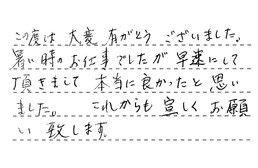 この度は 大変 有がとう ございました。
暑い時の お仕事でしたが 早速にして
頂きまして 本当に良かったと 思い
ました。 これからも 宜しく お願
い 致します